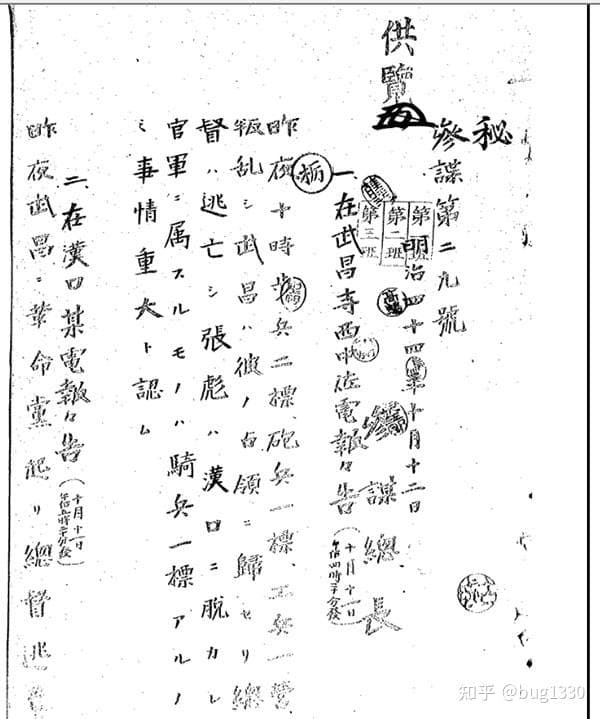 秘
參謀第二九號
供覽
第一班
第二班
第三班
明治四十四年十月十二日
參謀總長
一、在武昌寺西中佐電報々告(十月十一日午后四時三十分發)
栃
昨夜十時歩兵二標、砲兵一標、工兵一營
叛乱シ武昌ハ彼ノ占領ニ歸セリ總
督ハ逃亡シ張彪ハ漢口ニ脱カレ
官軍ニ属スルモノハ騎兵一標アルノ
ミ事情重大ト認ム
二、在漢口某電報々告(十月十一日午后五時三十分發)
昨夜武昌ニ革命黨起リ總督逃
知乎 @bug1330